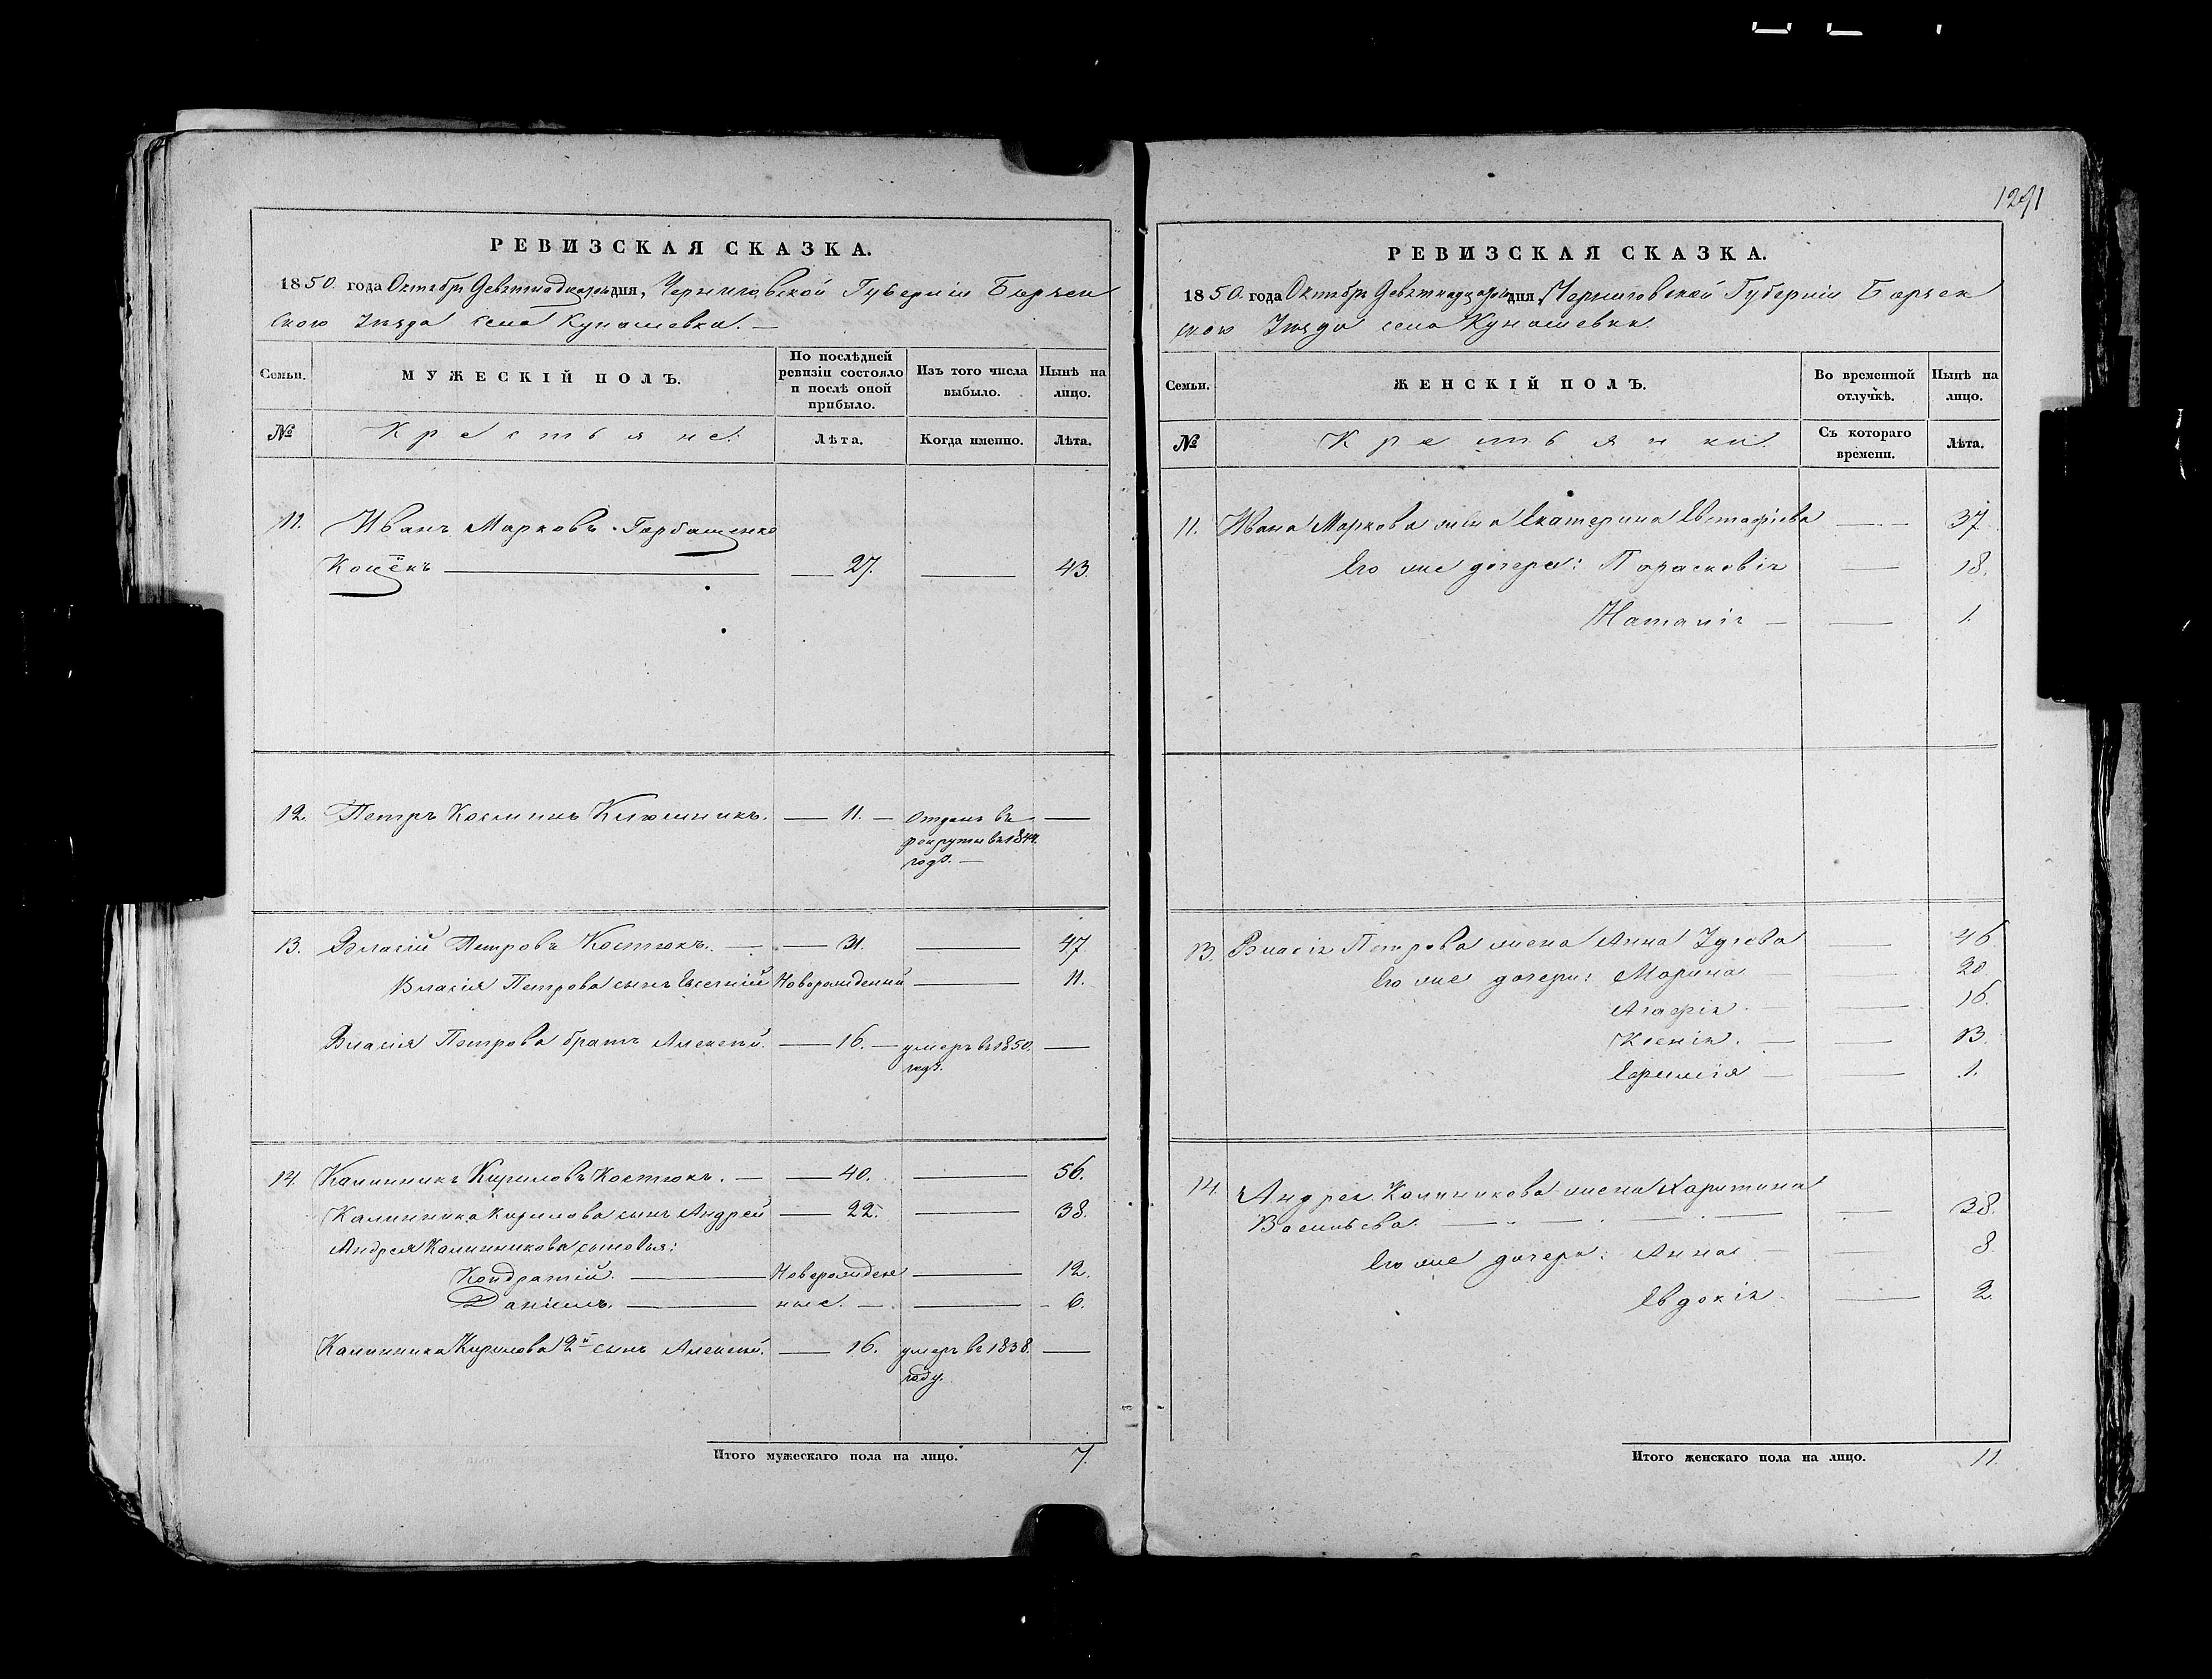 1291
РЕВИЗСКАЯ СКАЗКА.
1850. года Октября Девятнадцатого дня, Черниговской Губерніи Борзен
ского Уѣзда села Кунашевки. —
Семьи.
МУЖЕСКІЙ ПОЛЪ.
По послѣдней ревизіи состояло и послѣ оной прибыло.
Изъ того числа выбыло.
Нынѣ на лицо.
№
Крестьяне.
Лѣта.
Когда именно.
Лѣта.
11. Иванъ Марковъ Горбашенко
Коцёкъ — 27. — 43.
12. Петръ Косминъ Клюшникъ. — 11. — Отданъ въ —
рекруты въ 1844.
годѣ. —
13. Власій Петровъ Костюкъ. — 31. — 47.
Власія Петрова сынъ Евсеній Новорожденный — 11.
Власія Петрова братъ Алексѣй. — 16. — умеръ въ 1850. —
годѣ.
14. Калинникъ Кириловъ Костюкъ. — 40. — 56.
Калинника Кирилова сынъ Андрей — 22. — 38.
Андрея Калинникова сыновья:
Кондратій. — Новорожден — 12.
Даніилъ. — ные. — 6.
Калинника Кирилова 2й сынъ Алексѣй. — 16. умеръ въ 1838. —
году.
Итого мужескаго пола на лицо. 7.
РЕВИЗСКАЯ СКАЗКА.
1850. года Октября Девятнадцатого дня, Черниговской Губерніи Борзен
ского Уѣзда села Кунашевки.
Семьи.
ЖЕНСКІЙ ПОЛЪ.
Во временной отлучкѣ.
Нынѣ на лицо.
№
Крестьянки.
Съ котораго времени.
Лѣта.
11. Ивана Маркова жена Екатерина Евстафіева — 37
Его же дочери: Парасковія — 18.
Наталія — 1.
13. Власія Петрова жена Анна — 46
Его же дочери: Марина — 20
Агафія — 16.
Ксенія. — 13.
Ефимія — 1.
14. Андрея Калиникова жена Харитина
Васильева. — 38.
Его же дочери: Анна — 8
Евдокія. — 2.
Итого женскаго пола на лицо. 11.